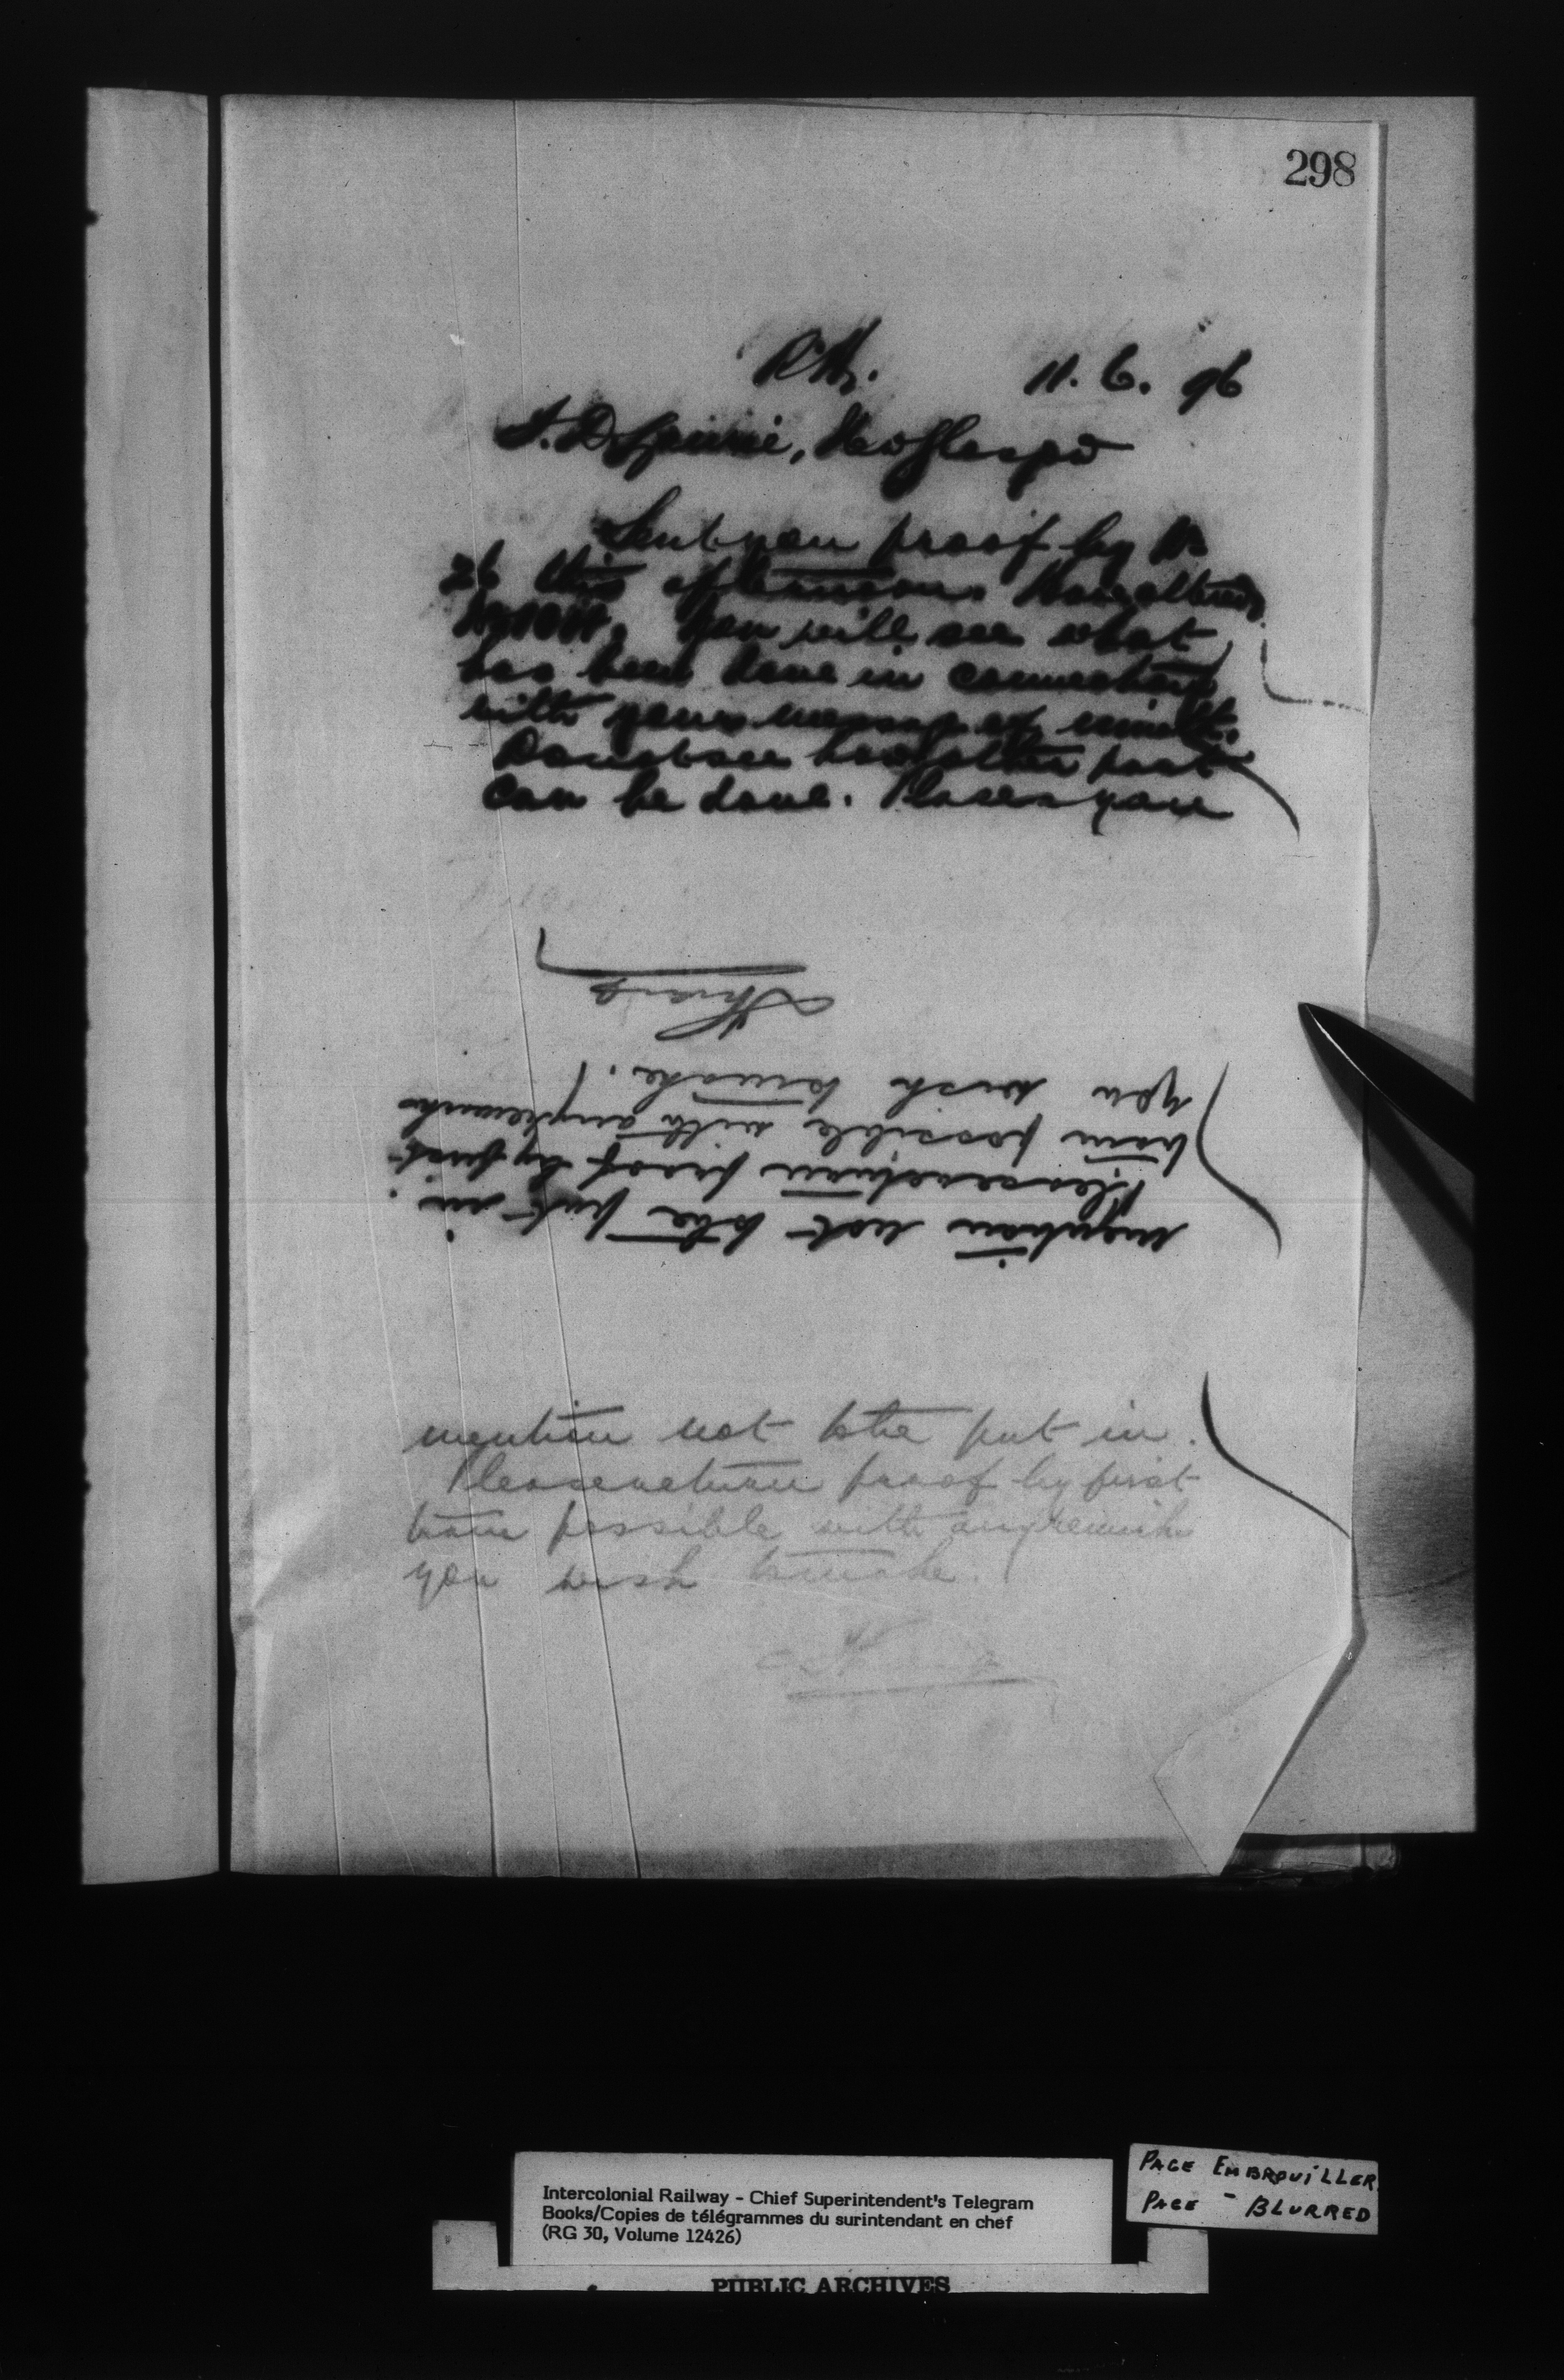 298
11. 6. 96
Sent you proof by No
26 this afternoon. Have altered
You will see what
has been done in connection
with your message of
Do not see how
can be done. Places you
mention not to be put in.
Please return proof by first
train possible with any remarks
you wish to make.
mention not to be put in.
Please return proof by first
train possible with any remarks
you wish to make.
Intercolonial Railway - Chief Superintendent's Telegram
Books/Copies de télégrammes du surintendant en chef
(RG 30, Volume 12426)
PAGE EMBROUILLER
PAGE - BLURRED
PUBLIC ARCHIVES